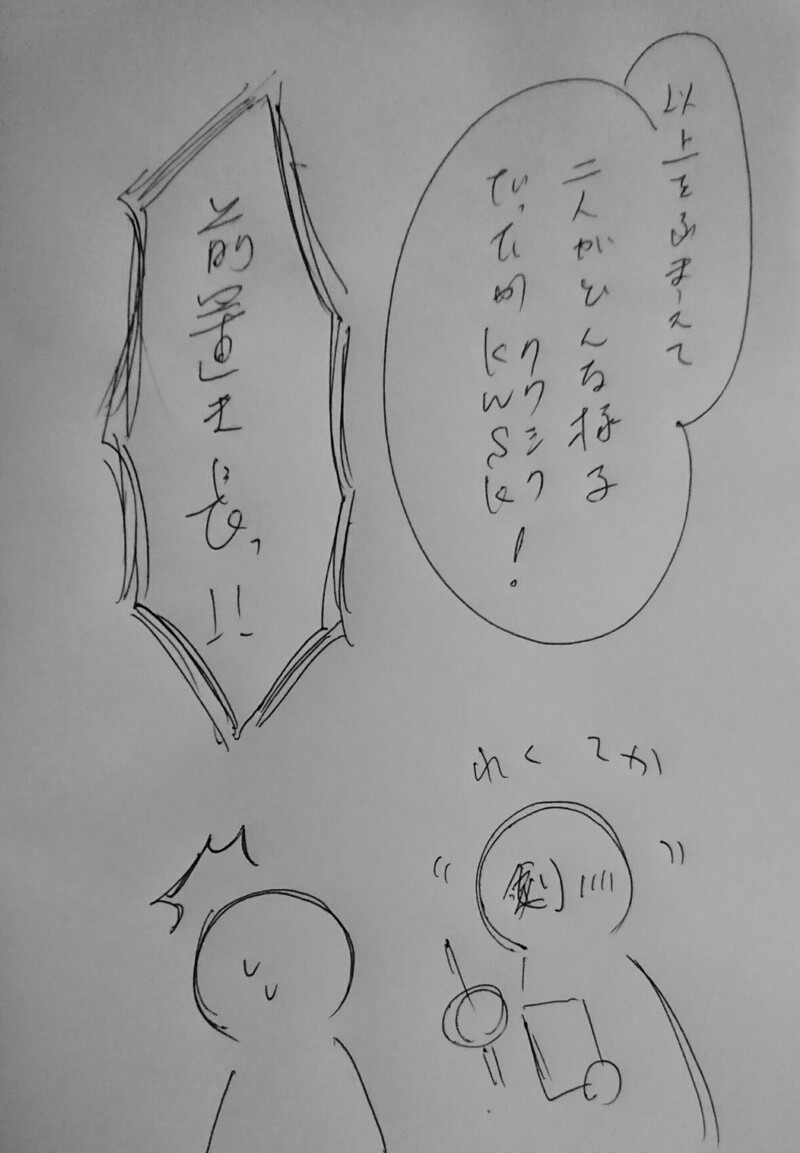 以上をふまえて
二人がどんな様子
だったかkwsk!
クワシク
前置き長っ!!
かてくれ